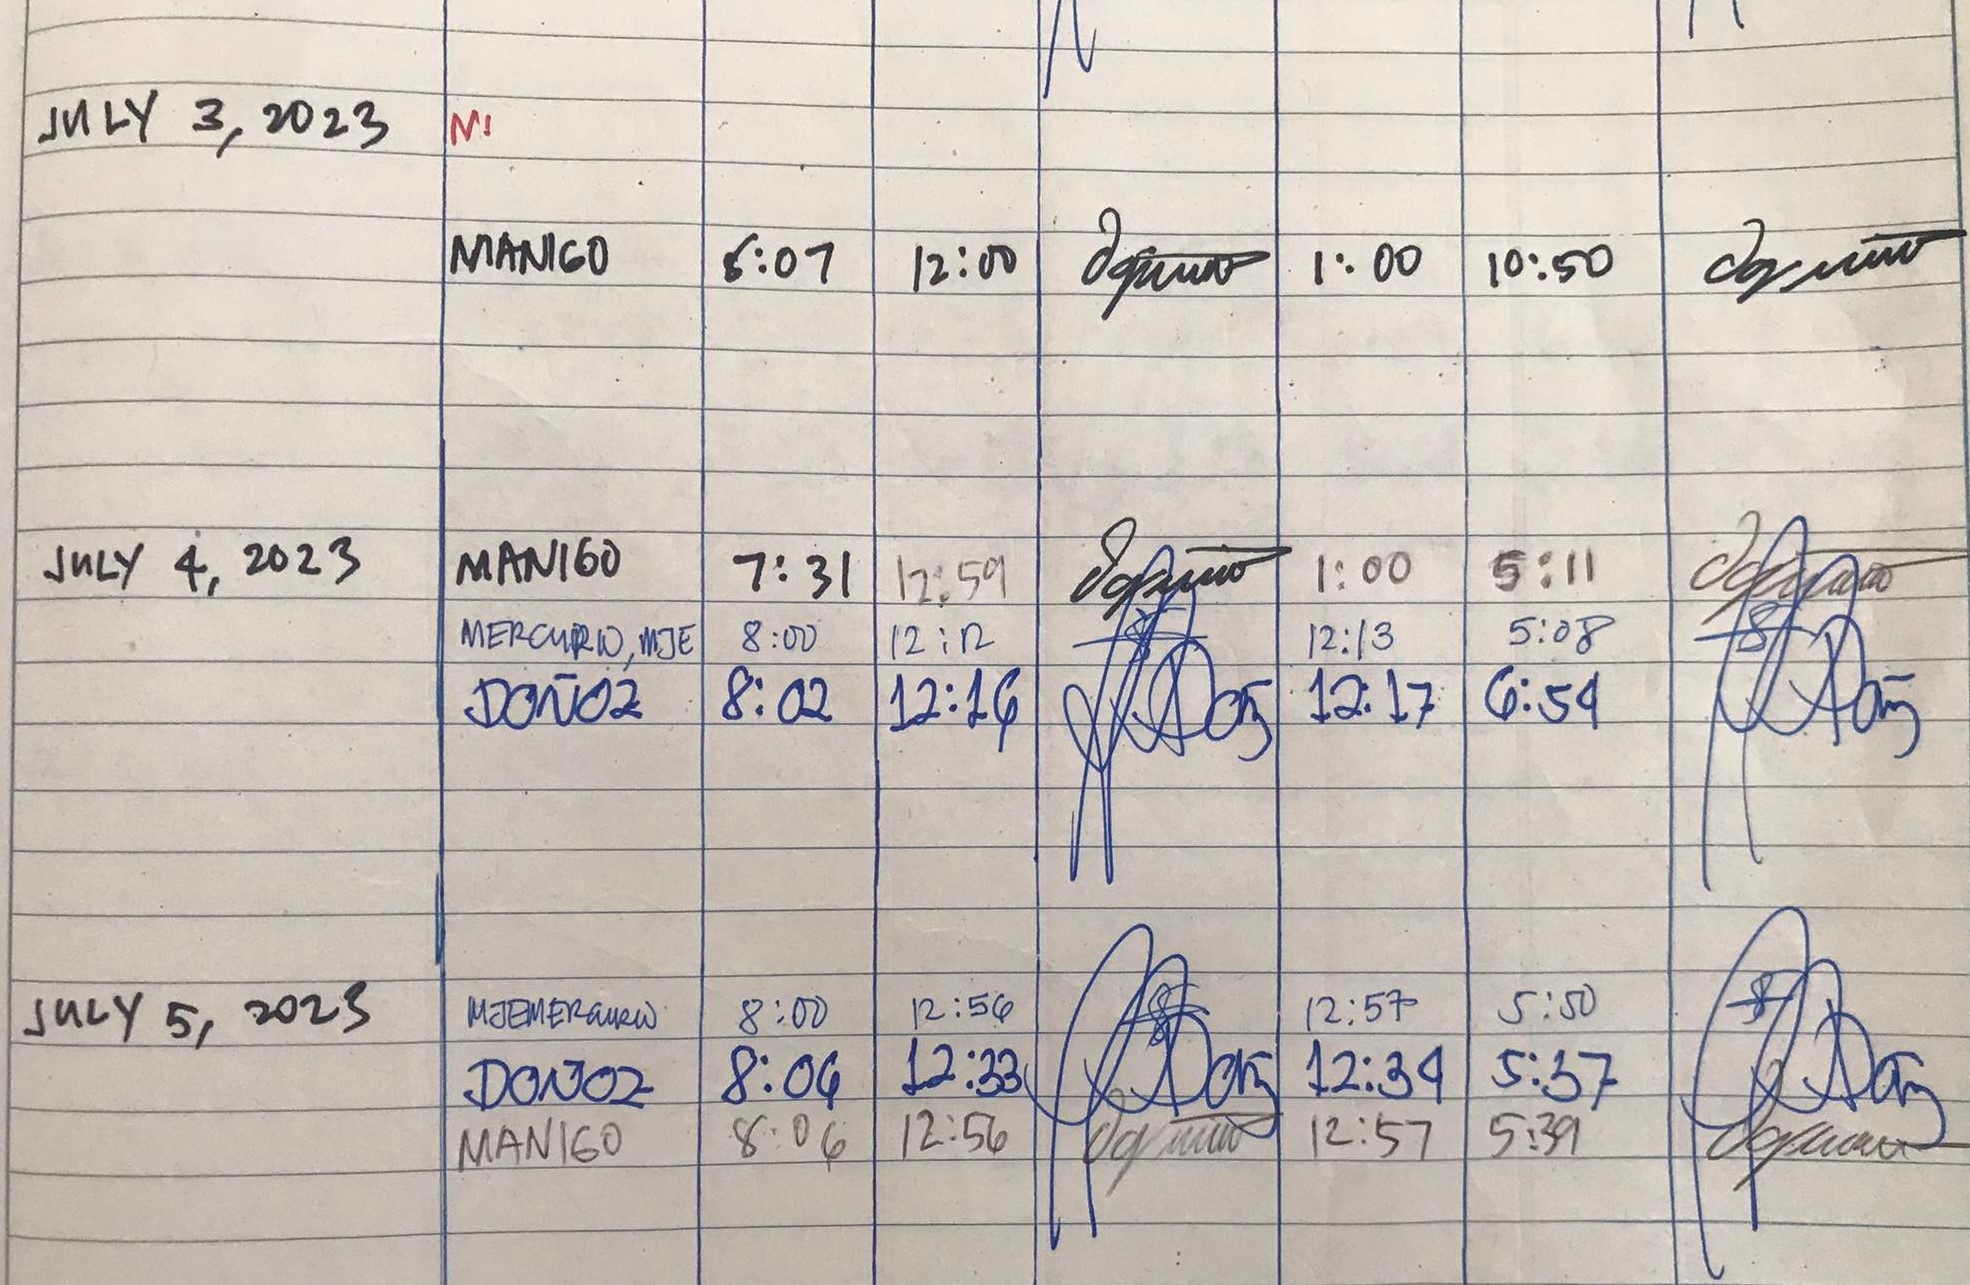 JULY 3, 2023
MANIGO 6:07 12:00 1:00 10:50
JULY 4, 2023 MANIGO 7:31 12:59 1:00 5:11
MERCURIO, MJE 8:00 12:12 12:13 5:08
DOÑOZ 8:02 12:16 12:17 6:54
JULY 5, 2023 MJEMERCURIO 8:00 12:56 12:57 5:50
DOÑOZ 8:06 12:33 12:34 5:37
MANIGO 8:06 12:56 12:57 5:39